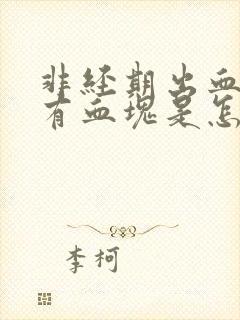 非经期出血
有血块是怎
李柯